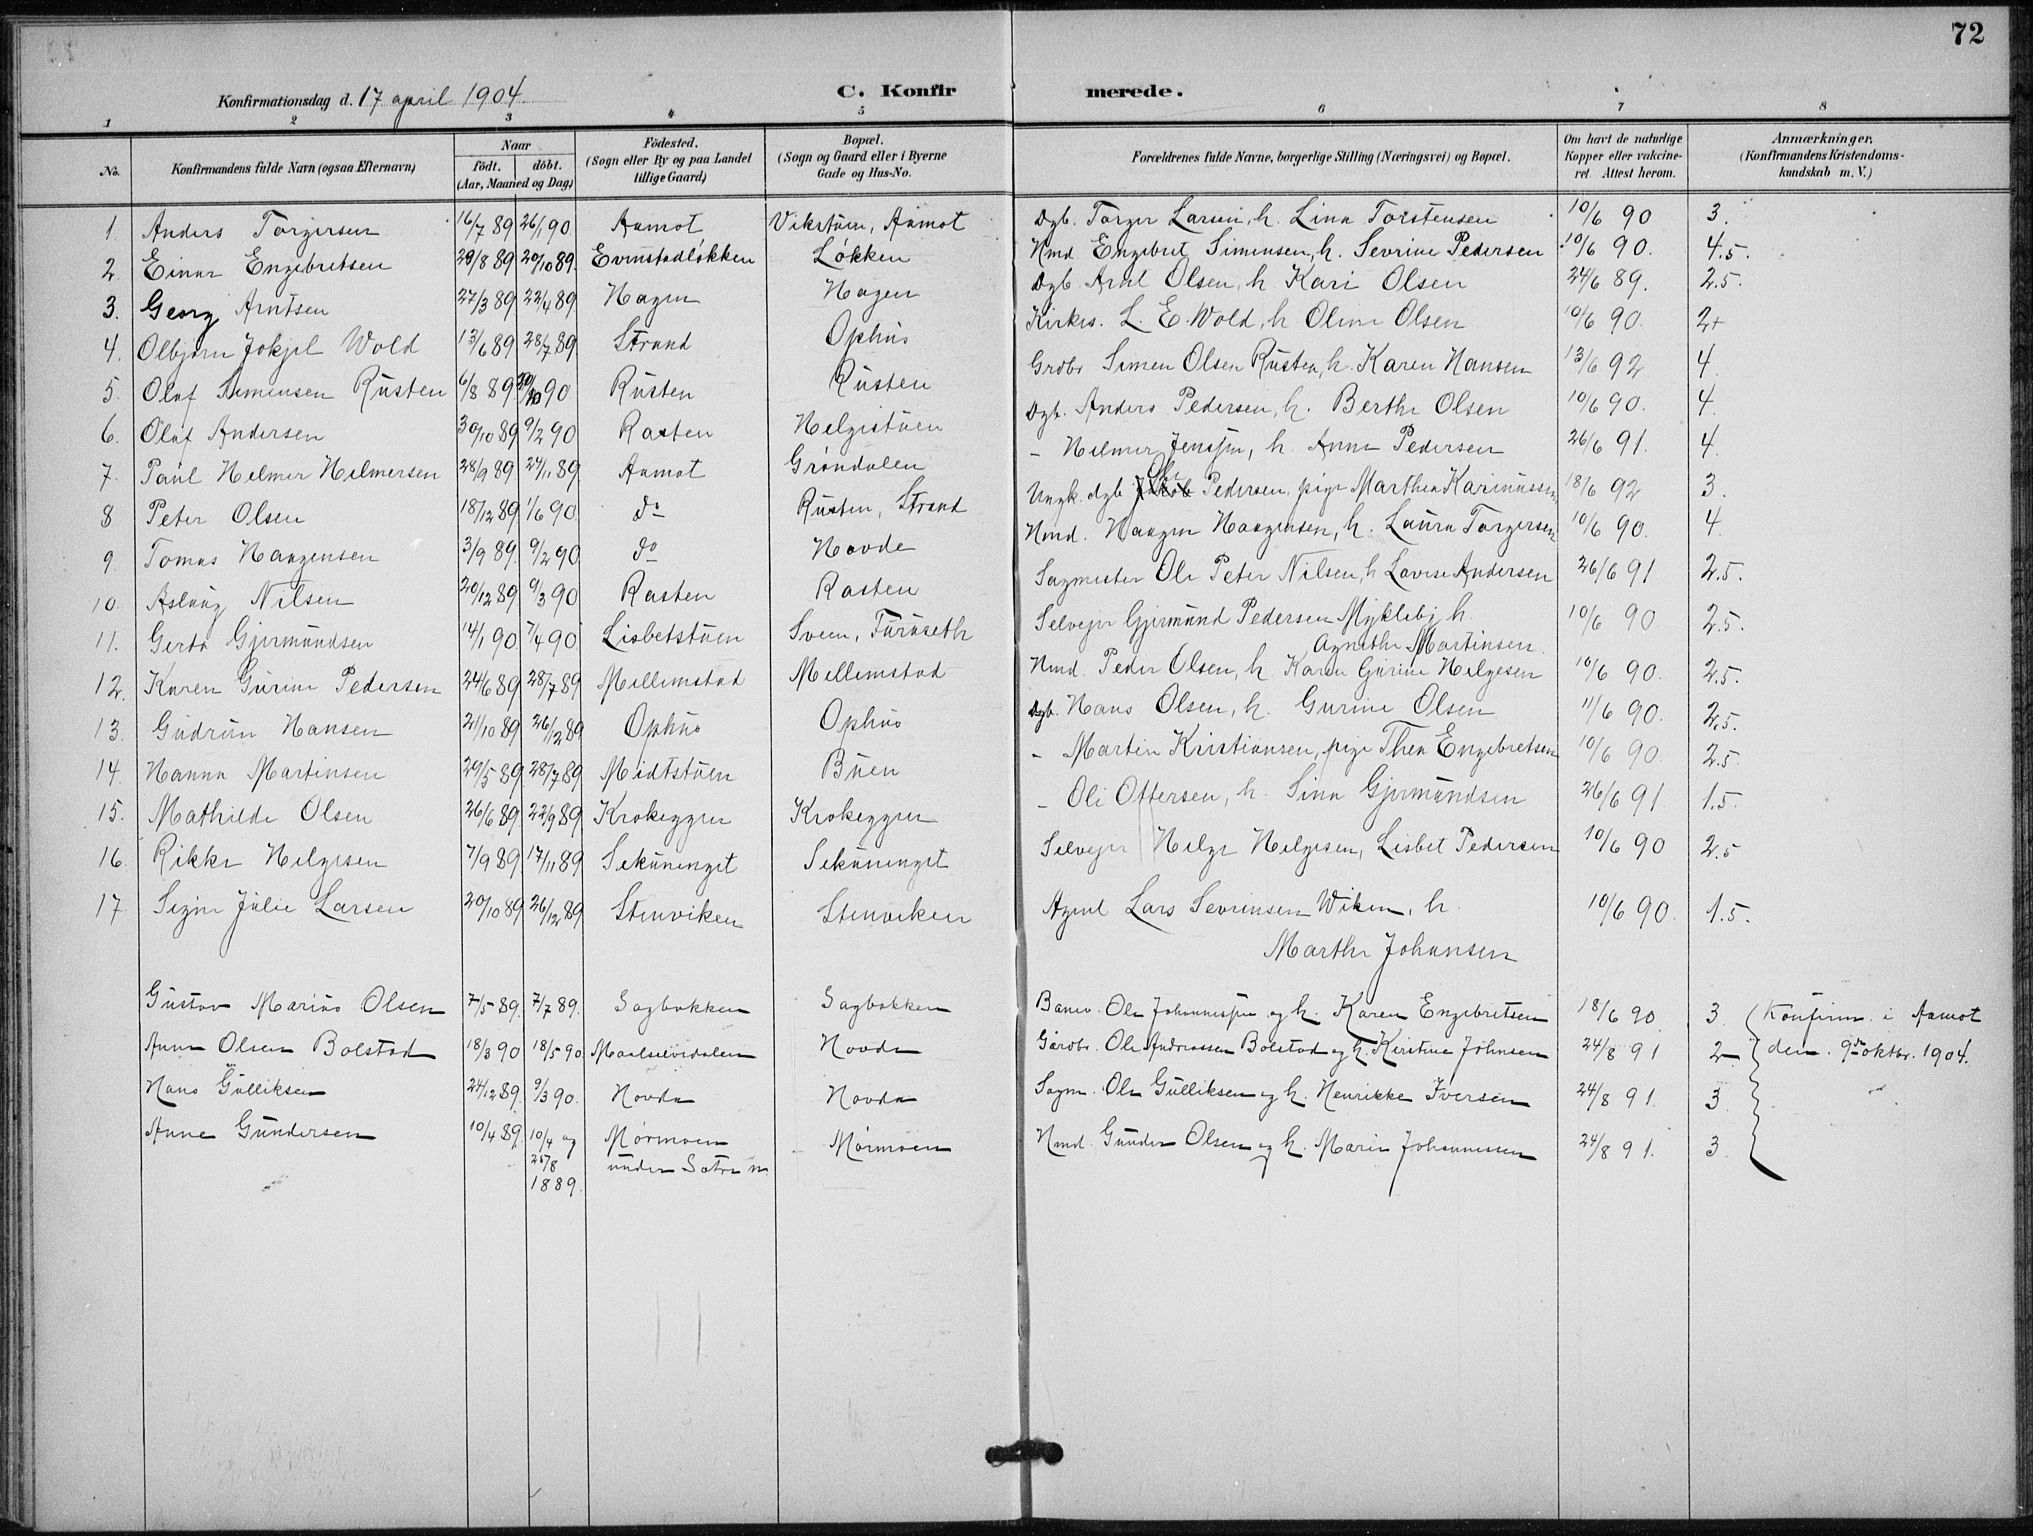 72
Konfirmationsdag d. 17 april 1904.
C. Konfirmerede.
1 2 3 4 5 6 7 8
No. Konfirmandens fulde Navn (ogsaa Efternavn) Naar födt. döbt. (Aar, Maaned og Dag) Födested. (Sogn eller By og paa Landet tillige Gaard) Bopæl. (Sogn og Gaard eller i Byerne Gade og Hus-No. Forældrenes fulde Navne, borgerlige Stilling (Næringsvei) og Bopæl. Om havt de naturlige Kopper eller vakcineret. Attest herom. Anmærkninger. (Konfirmandens Kristendomskundskab m. V.)
1. Anders Torgersen 16/7 89 26/1 90 Aamot Vikstuen, Aamot Dgb. Torger Larsen, h. Lina Torstensen 10/6 90 3.
2. Einar Engebretsen 29/8 89 20/10 89. Evenstadløkken Løkken Hmd. Engebret Simensen, h. Sevrine Pedersen 10/6 90. 4.5.
3. Georg Arntsen 27/3 89 22/4 89 Hagen Hagen Dgb. Arnt Olsen, h. Kari Olsen 24/6 89. 2.5.
4. Olbjørn Wold 13/6 89 28/7 89 Strand Ophus Kirkes. L. E. Wold, h. Oline Olsen 10/6 90. 2+
5. Olaf Simensen Rusten 6/8 89 90 Rusten Rusten Grdbr Simen Olsen Rusten, h. Karen Hansen 13/6 92 4
6. Olaf Andersen 30/10 89 9/2 90 Rasten Helgistuen Dgb. Anders Pedersen, h. Berthe Olsen 10/6 90. 4.
7. Paul Helmer Helmersen 28/9 89 24/11 89 Aamot Grøndalen - Helmer Jenssen, h. Anne Pedersen 26/6 91. 4.
8 Peter Olsen 18/12 89 1/6 90. do Rusten, Strand Ungk. dgb Ole Pedersen, pige Marthea Karinussen 18/6 92 3.
9. Tomas Haagensen 3/9 89. 9/2 90 do Hovde Hmd. Haagen Haagensen, h. Laura Torgersen 10/6 90. 4.
10. Aslaug Nilsen 20/12 89 9/3 90 Rasten Rasten Sagmester Ole Peter Nilsen, h Lovise Andersen 26/6 91 2.5.
11. Gerda Gjermundsen 14/1 90 7/4 90 Lisbetstuen Sveen, Furuseth Selveier Gjermund Pedersen Mykleby h. 10/6 90. 2.5.
Agnethe Martinsen.
12. Karen Gurine Pedersen 24/6 89 28/7 89 Mellemstad Mellemstad Hmd. Peder Olsen, h. Karen Gurine Helgesen 10/6 90. 2.5.
13. Gudrun Hansen 21/10 89 26/12 89 Ophus Ophus Dgb. Hans Olsen, h. Gurine Olsen 11/6 90. 2.5.
14. Hanna Martinsen 29/5 89 28/7 89 Midtstuen Buen - Martin Kristiansen, pige Thea Engebretsen 10/6 90 2.5.
15. Mathilde Olsen 26/6 89 22/9 89 Krokeggen Krokeggen - Ole Ottersen, h. Sina Gjermundsen 26/6 91. 1.5.
16. Rikke Helgesen 7/9 89 17/11 89 Sekunenget Sekunenget Selveier Helge Helgesen, Lisbet Pedersen 10/6 90 2.5
17. Signe Julie Larsen 20/10 89 26/12 89 Stenviken Stenviken Agent Lars Sevrinsen Wiken, h. 10/6 90. 1.5.
Marthe Johansen
Gustav Marius Olsen 7/5 89. 7/7 89. Sagbakken Sagbakken Banev. Ole Johannessen og h. Karen Engebretsen 18/6 90 3. Konfirm. i Aamot
Anne Olsen Bolstad 18/3 90 18/5 90. Hovda Gårdbr. Ole Andreassen Bolstad og h. Kirstine Johnsen 24/8 91 2 den. 9de oktbr. 1904.
Hans Gulliksen 24/12 89. 9/3 90. Hovda Hovda Sagm. Ole Gulliksen og h. Henrikke Iversen 24/8 91. 3
Anne Gundersen 10/4 89. 10/4 og Mørmoen Mørmoen Hmd. Gunder Olsen og h. Marie Johannessen 24/8 91. 3.
25/8 under
1889.